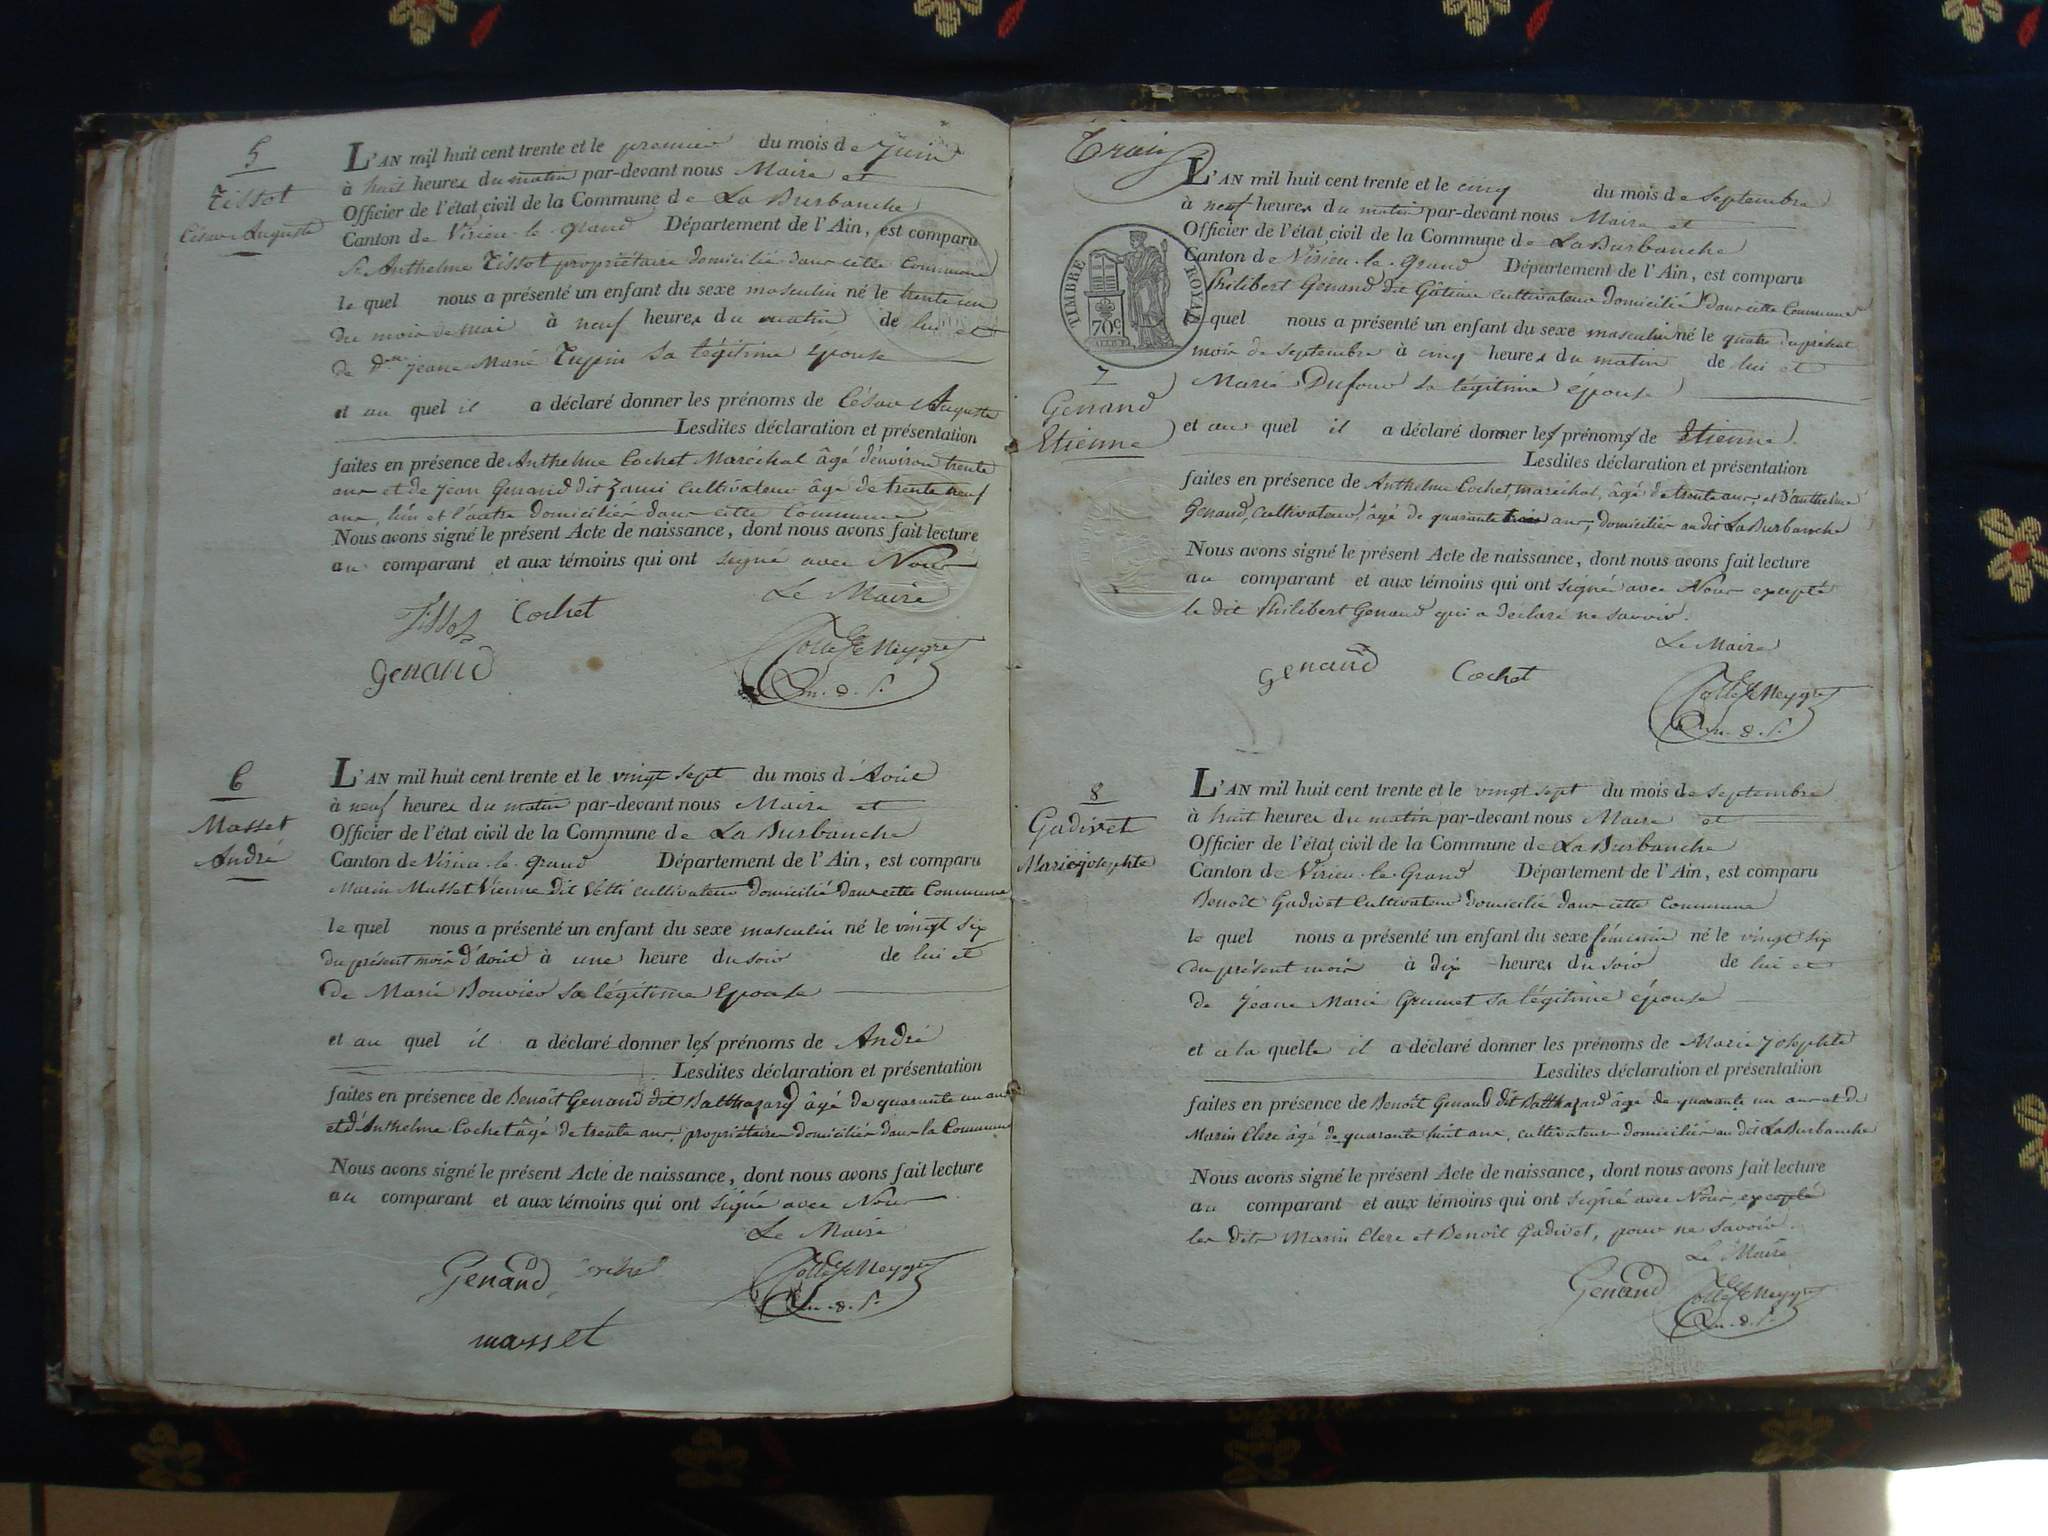 5
Tissot
César Auguste
L'AN mil huit cent trente et le premier du mois de Juin
à huit heures du matin par-devant nous Maire et
Officier de l'état civil de la Commune de La Burbanche
Canton de Virieu-le-grand Département de l'Ain, est comparu
Sr Anthelme Tissot propriétaire domicilié dans cette Commune
le quel nous a présenté un enfant du sexe masculin né le trente un
du mois de mai à neuf heures du matin de lui et
de dme jeane Marie Tupin sa légitime Epouse
et au quel il a déclaré donner les prénoms de César Auguste
Lesdites déclaration et présentation
faites en présence de Anthelme Cochet Maréchal âgé d'environ trente
ans et de jean Genand dit cultivateur âgé de trente neuf
ans, l'un et l'autre domiciliés dans cette Commune
Nous avons signé le présent Acte de naissance, dont nous avons fait lecture
au comparant et aux témoins qui ont signé avec Nous
Le Maire
Tissot Cochet
Genand
6
Masset
André
L'AN mil huit cent trente et le vingt sept du mois d'Août
à neuf heures du matin par-devant nous Maire et
Officier de l'état civil de la Commune de La Burbanche
Canton de Virieu-le-grand Département de l'Ain, est comparu
Marin Masset Vienne dit cultivateur domicilié dans cette Commune
le quel nous a présenté un enfant du sexe masculin né le vingt six
du présent mois d'août à une heure du soir de lui et
de Marie Bouvier sa légitime Epouse
et au quel il a déclaré donner les prénoms de André
Lesdites déclaration et présentation
faites en présence de Benoît Genand dit Balthazard âgé de quarante un ans
et d'Anthelme Cochet âgé de trente ans, propriétaires domiciliés dans la Commune
Nous avons signé le présent Acte de naissance, dont nous avons fait lecture
au comparant et aux témoins qui ont signé avec Nous
Le Maire
Genand Cochet
masset
Trois
L'AN mil huit cent trente et le cinq du mois de septembre
à neuf heures du matin par-devant nous Maire et
Officier de l'état civil de la Commune de La Burbanche
Canton de Virieu-le-Grand Département de l'Ain, est comparu
TIMBRE ROYAL
70c
Philibert Genand dit Gâteau cultivateur domicilié dans cette Commune
le quel nous a présenté un enfant du sexe masculin né le quatre du présent
mois de septembre à cinq heures du matin de lui et
Marie Dufour sa légitime épouse
7
Genand
Etienne
et au quel il a déclaré donner les prénoms de Etienne
Lesdites déclaration et présentation
faites en présence de Anthelme Cochet, maréchal, âgé de trente ans, et d'anthelme
Genand, cultivateur, âgé de quarante trois ans, domiciliés au dit La Burbanche
Nous avons signé le présent Acte de naissance, dont nous avons fait lecture
au comparant et aux témoins qui ont signé avec Nous excepté
le dit Philibert Genand qui a déclaré ne savoir.
Le Maire
Genand Cochet
8
Gudivet
Marie josephte
L'AN mil huit cent trente et le vingt sept du mois de septembre
à huit heures du matin par-devant nous Maire et
Officier de l'état civil de la Commune de La Burbanche
Canton de Virieu-le-Grand Département de l'Ain, est comparu
Benoît Gudivet Cultivateur domicilié dans cette Commune
le quel nous a présenté un enfant du sexe féminin né le vingt six
du présent mois à dix heures du soir de lui et
de Jeane Marie Grumet sa légitime épouse
et a la quelle il a déclaré donner les prénoms de Marie josephte
Lesdites déclaration et présentation
faites en présence de Benoît Genand dit Balthazard âgé de quarante un ans et de
Marin Clerc âgé de quarante huit ans, cultivateurs domiciliés au dit La Burbanche
Nous avons signé le présent Acte de naissance, dont nous avons fait lecture
au comparant et aux témoins qui ont signé avec Nous, excepté
les dits Marin Clerc et Benoît Gudivet, pour ne savoir.
Le Maire
Genand